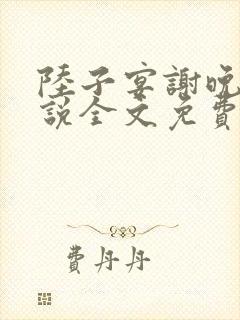 陸子宴謝晚
說全文免費
費丹丹